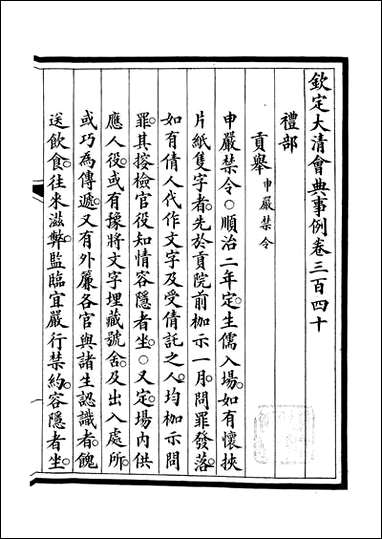 欽定大清會典事例卷三百四十
禮部
貢舉申嚴禁令
申嚴禁令○順治二年定。生儒入場。如有懷挾
片紙隻字者。先於貢院前枷示一月。問罪發落。
如有倩人代作文字及受倩託之人。均枷示問
罪。其搜檢官役知情容隱者坐。○又定。場內供
應人役。或有豫將文字埋藏號舍。及出入處所。
或巧為傳遞。又有外簾各官與諸生認識者。餽
送飲食。往來滋弊。監臨宜嚴行禁約。容隱者坐。